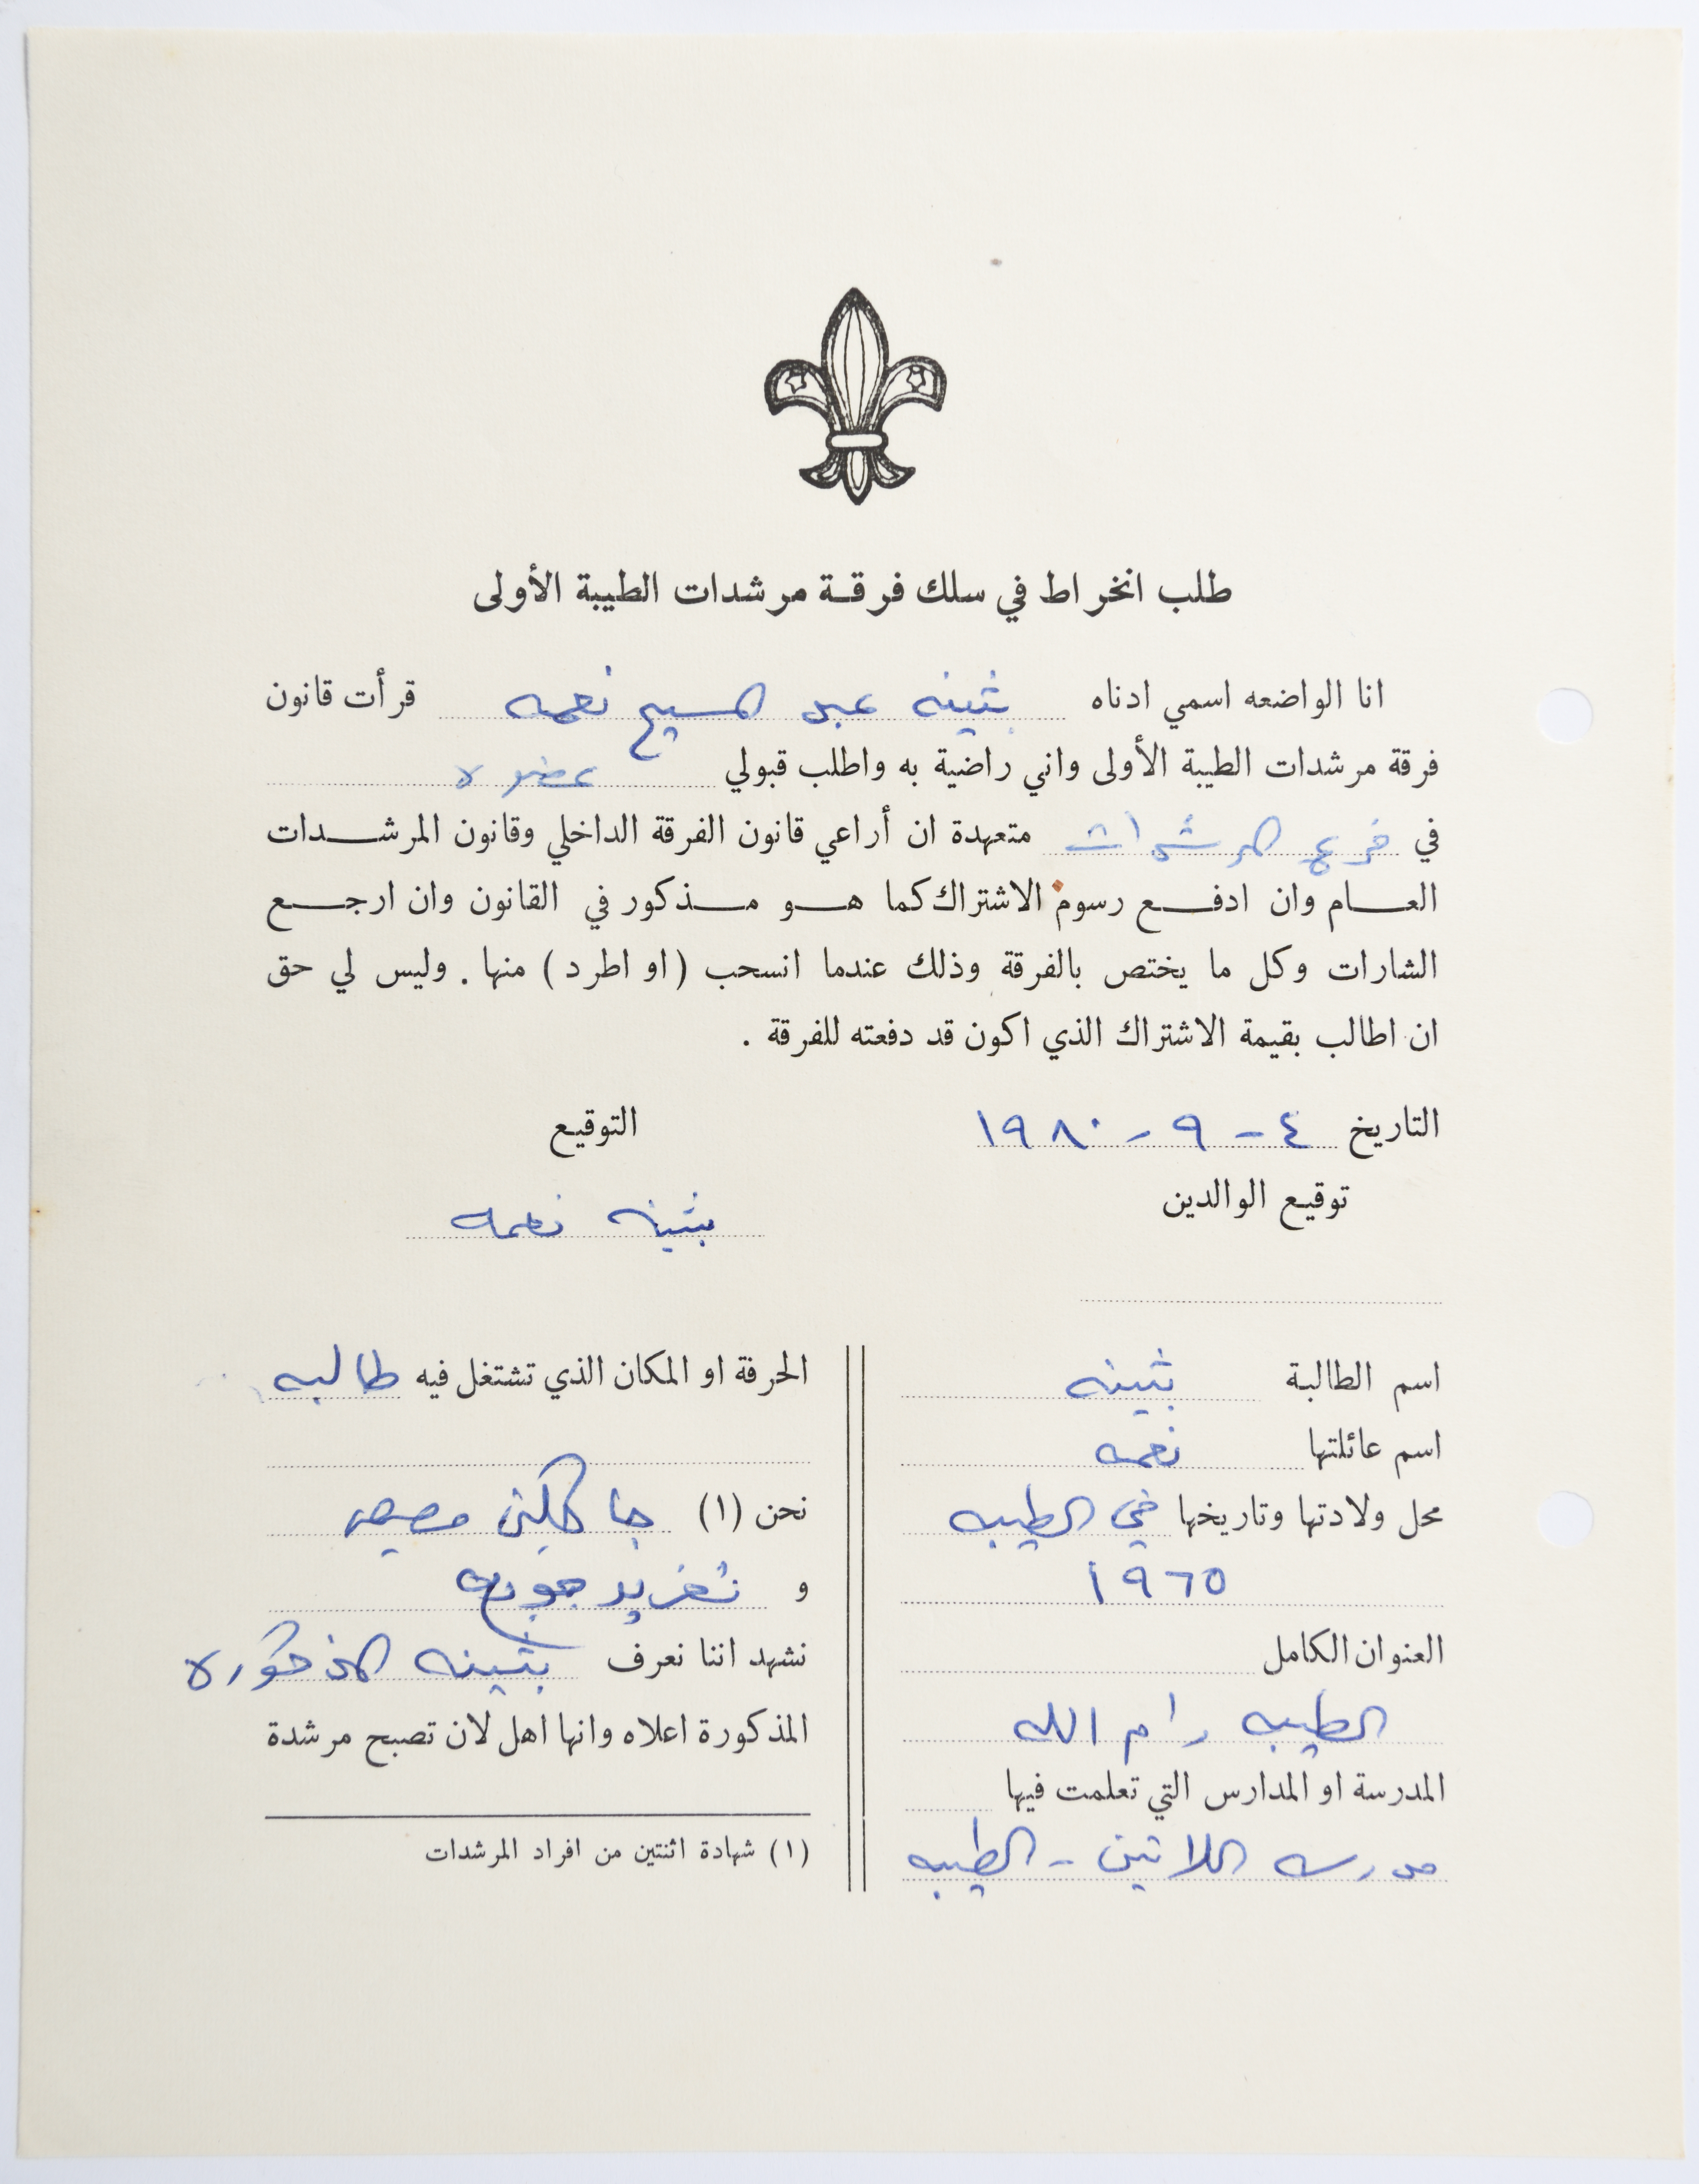 طلب انخراط في سلك فرقة مرشدات الطيبة الأولى
انا الواضعه اسمي ادناه بثينه عبد المسيح نعمه قرأت قانون
فرقة مرشدات الطيبة الأولى واني راضية به واطلب قبولي عضوه
في فرع المرشدات متعهدة ان أراعي قانون الفرقة الداخلي وقانون المرشدات
العام وان ادفع رسوم الاشتراك كما هو مذكور في القانون وان ارجع
الشارات وكل ما يختص بالفرقة وذلك عندما انسحب (او اطرد) منها . وليس لي حق
ان اطالب بقيمة الاشتراك الذي اكون قد دفعته للفرقة .
التاريخ ٤ - ٩ - ١٩٨٠
التوقيع
توقيع الوالدين
بثينه نعمه
اسم الطالبة بثينه
اسم عائلتها نعمه
محل ولادتها وتاريخها في الطيبه
١٩٦٥
العنوان الكامل
الطيبه رام الله
المدرسة او المدارس التي تعلمت فيها
مدرسه اللاتين - الطيبه
الحرفة او المكان الذي تشتغل فيه طالبه
نحن (١) جاكلين
و تغريد
نشهد اننا نعرف بثينه المذكوره
المذكورة اعلاه وانها اهل لان تصبح مرشدة
(١) شهادة اثنتين من افراد المرشدات